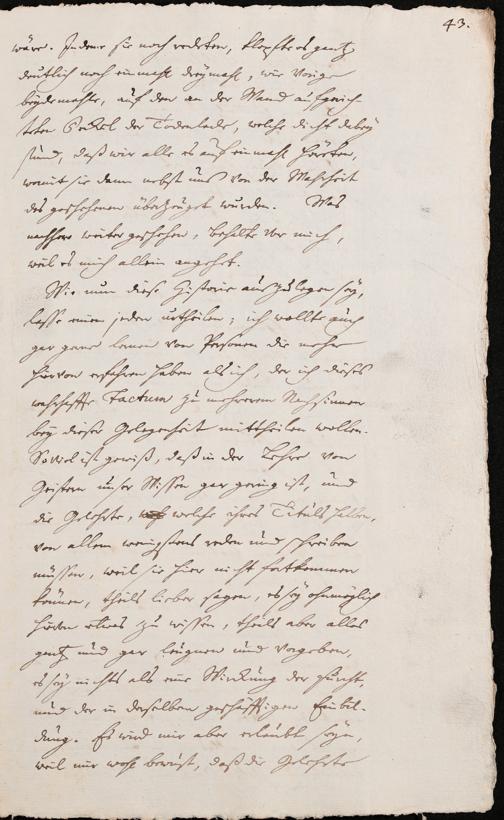 43.
wäre. Indeme sie noch redeten, klopfte es gantz
deutlich noch einmahl dreymahl, wie vorige
beydemahle, auf den an der Wand aufgerich-
teten Deckel der Todenlade, welche dicht dabey
stund, daß wir alle es auf einmahl hörten,
womit sie dann nebst uns von der Wahrheit
des geschehenen überzeuget wurden. Was
nachhero weiter geschehen, behalte vor mich,
weil es mich allein angehet.
Wie nun diese Historie auszulegen sey,
lasse einen jeden urtheilen; ich wollte auch
gar gerne lernen von Personen die mehr
hiervon erfahren haben als ich, der ich dieses
wahrhaffte Factum zu mehrerem Nachsinnen
bey dieser Gelegenheit mittheilen wollen.
So viel ist gewiß, daß in der Lehre von
Geistern unser Wissen gar gering ist, und
die Gelehrte, welche ihres Tituls halben,
von allem wenigstens reden und schreiben
müssen, weil sie hier nicht fortkommen
können, theils lieber sagen, es sey ohnmöglich
hievon etwas zu wissen, theils aber alles
gantz und gar leugnen und vorgeben,
es sey nichts als eine Würckung der Furcht,
und der in derselben geschäfftigen Einbil-
dung. Es wird mir aber erlaubt seyn,
weil mir wohl bewust, daß die Gelehrte